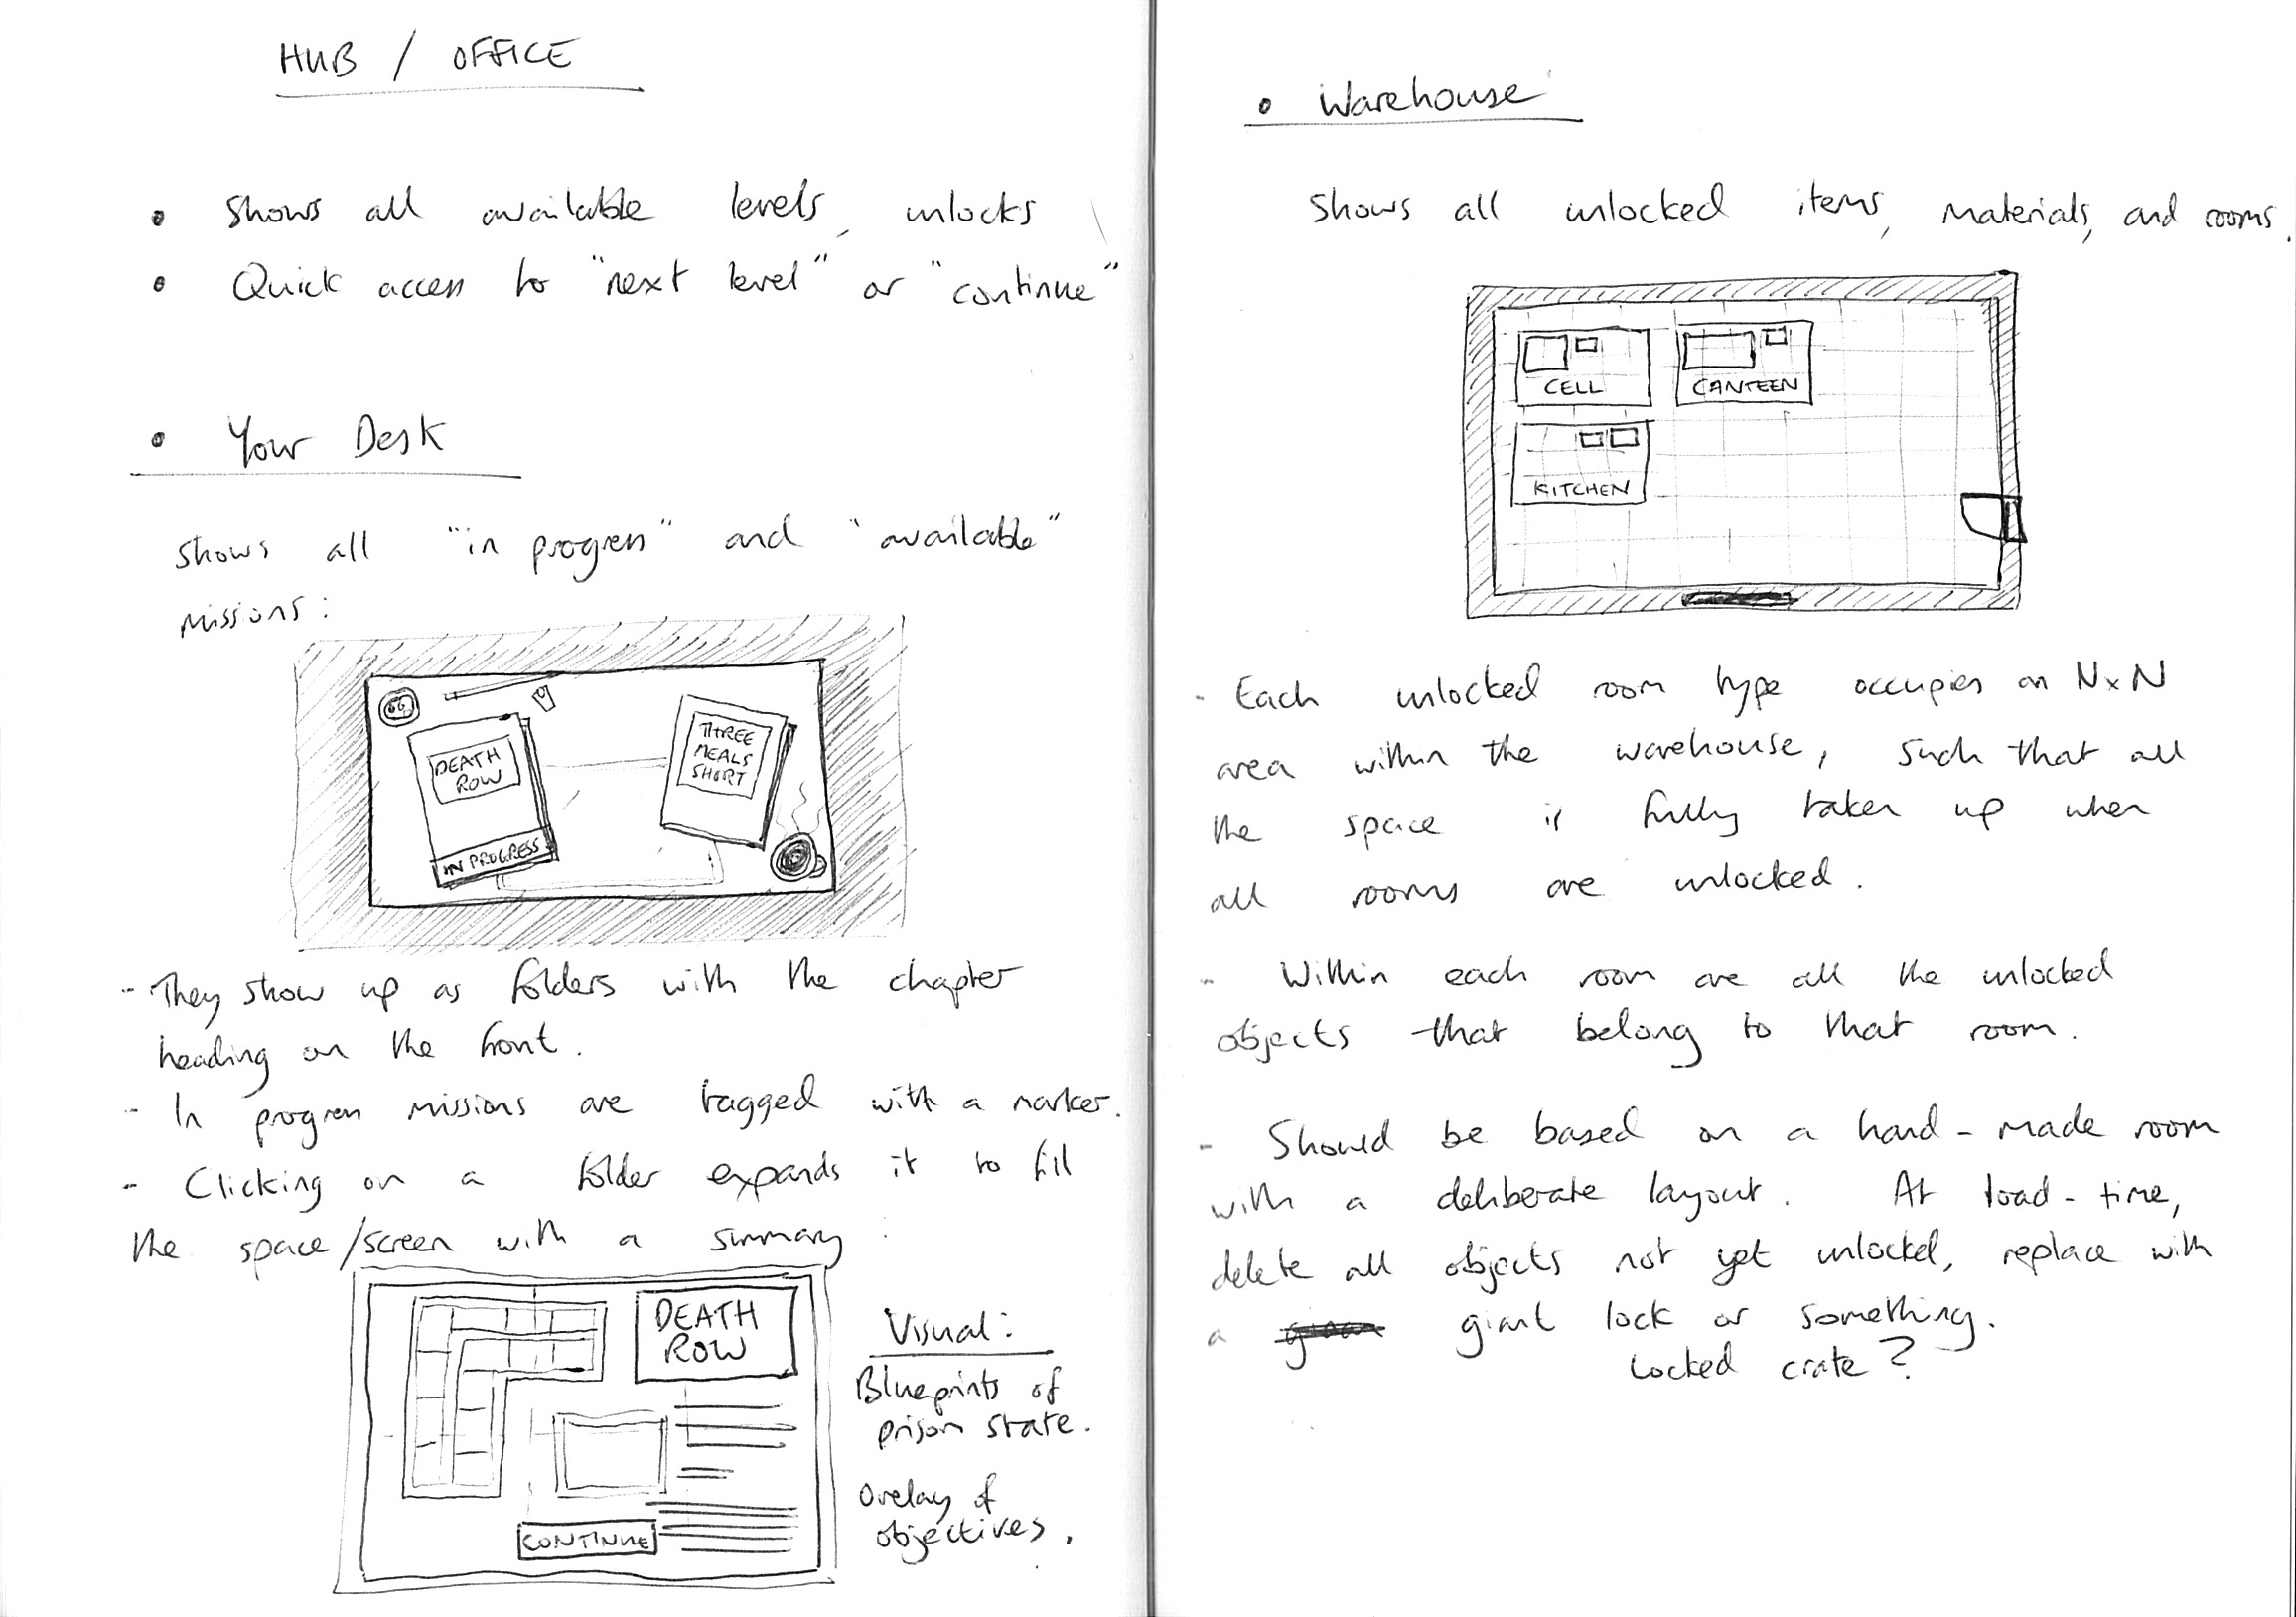 HUB / OFFICE
• Shows all available levels, unlocks
• Quick access to "next level" or "continue"
• Your Desk
Shows all "in progress" and "available"
missions:
DEATH
ROW
IN PROGRESS
THREE
MEALS
SHORT
- They show up as folders with the chapter
heading on the front.
- In progress missions are tagged with a marker.
- Clicking on a folder expands it to fill
the space/screen with a summary:
DEATH
ROW
CONTINUE
Visual:
Blueprints of
prison state.
Overlay of
objectives.
• Warehouse
Shows all unlocked items, materials, and rooms.
CELL
CANTEEN
KITCHEN
- Each unlocked room type occupies an N×N
area within the warehouse, such that all
the space is fully taken up when
all rooms are unlocked.
- Within each room are all the unlocked
objects that belong to that room.
- Should be based on a hand-made room
with a deliberate layout. At load-time,
delete all objects not yet unlocked, replace with
a giant lock or something.
Locked crate?